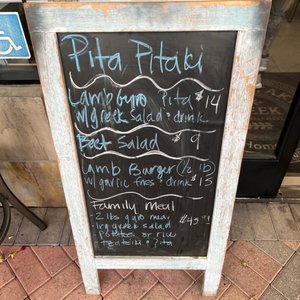 Pita Pitaki
Lamb Gyro Pita $14
w/greek salad + drink
Beet Salad $9
Lamb Burger (1/2 lb)
w/ garlic fries + drink $15
Family Meal
- 2 lbs gyro meat
- lrg greek salad
- potatoes or rice
- tzatziki + pita